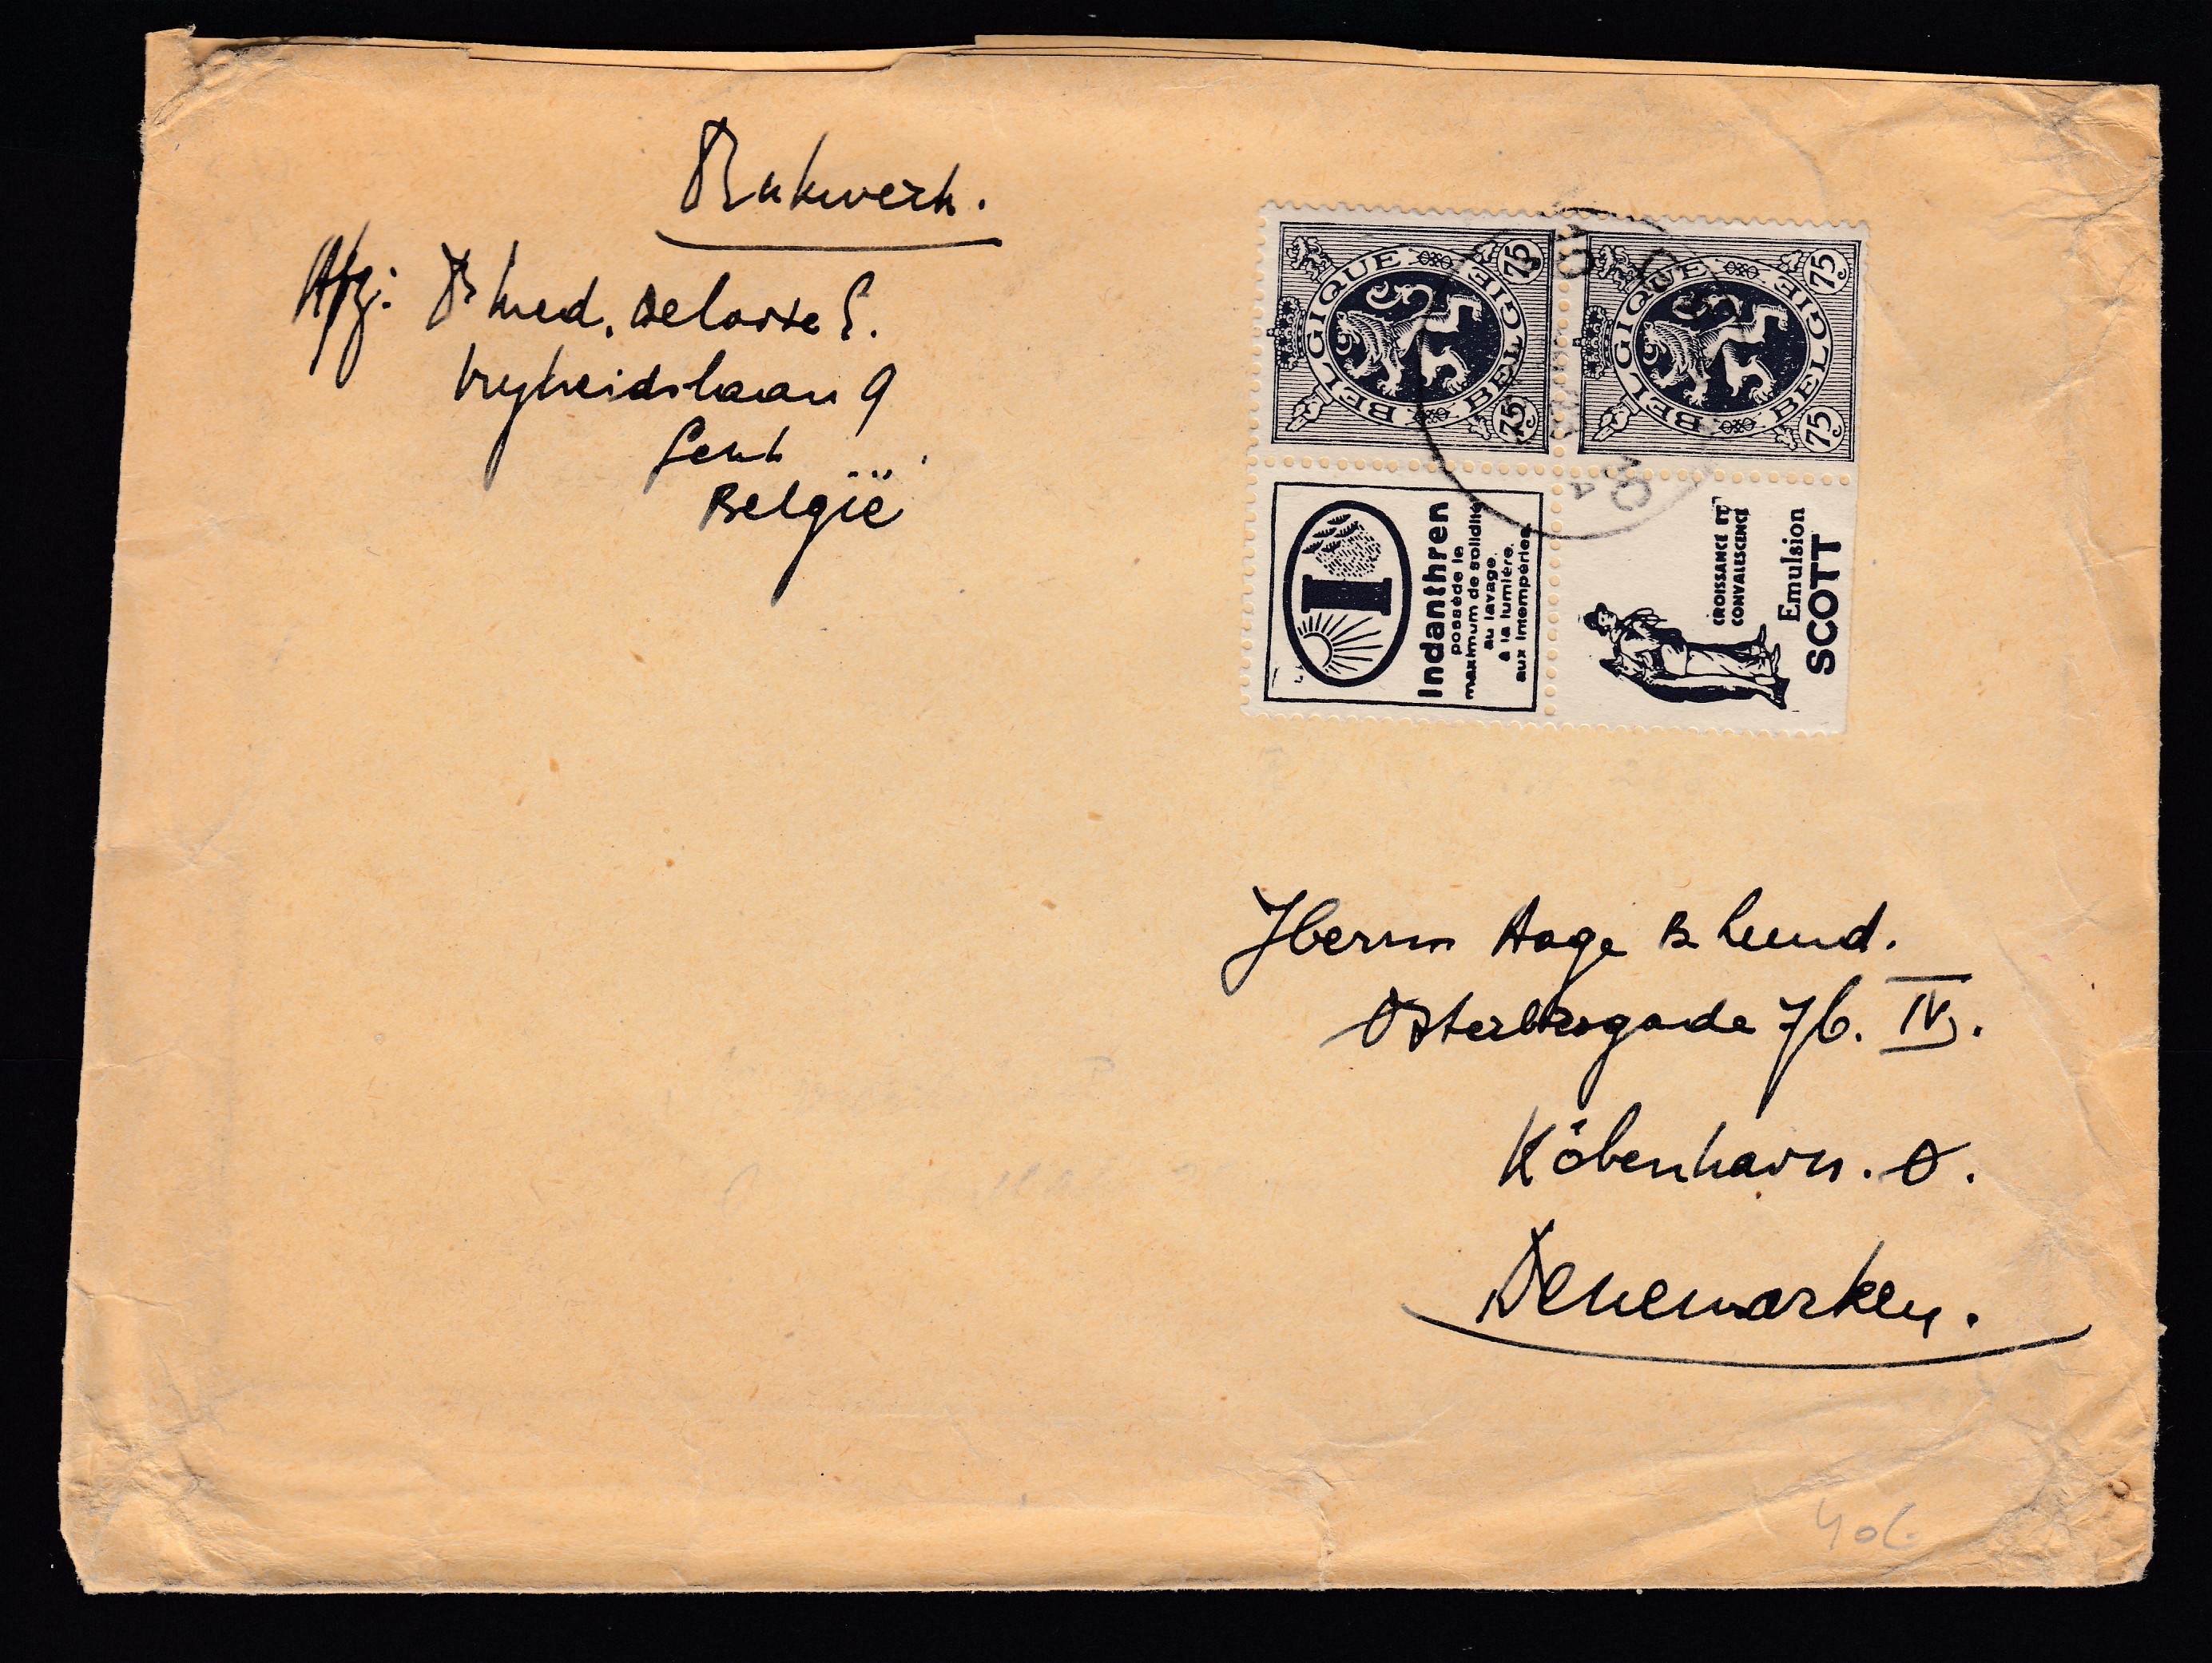 Drukwerk.
Afz: Dr Med. Delarte E.
Vryheidslaan 9
Gent
België
BELGIQUE BELGIE 75 75
BELGIQUE BELGIE 75 75
Indanthren
possède le
maximum de solidité
au lavage
à la lumière.
aux intempéries
CROISSANCE ET
CONVALESCENCE
Emulsion
SCOTT
Herrn Aage B Lund.
Osterbrogade 76. IV.
Köbenhavn. O.
Denemarken.